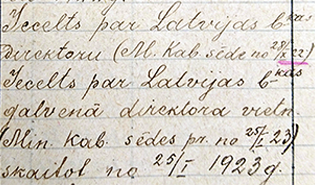 Iecelts par Latvijas b-kas
direktoru (M. Kab. sēdes no 22)
Iecelts par Latvijas b-kas
galvenā direktora vietn.
(Min. Kab. sēdes pr. no 25/I 23)
skaitot no 25/I 1923 g.